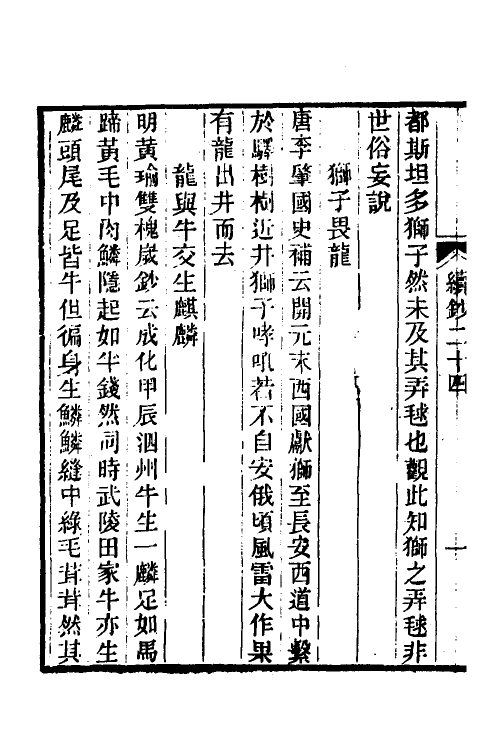 續鈔二十四
一
都斯坦多獅子然未及其弄毬也觀此知獅之弄毬非
世俗妄說
獅子畏龍
唐李肇國史補云開元末西國獻獅至長安西道中繫
於驛樹樹近井獅子哮吼若不自安俄頃風雷大作果
有龍出井而去
龍與牛交生麒麟
明黃瑜雙槐歲鈔云成化甲辰泗州牛生一麟足如馬
蹄黃毛中肉鱗隱起如半錢然同時武陵田家牛亦生
麟頭尾及足皆牛但徧身生鱗鱗縫中綠毛茸茸然其